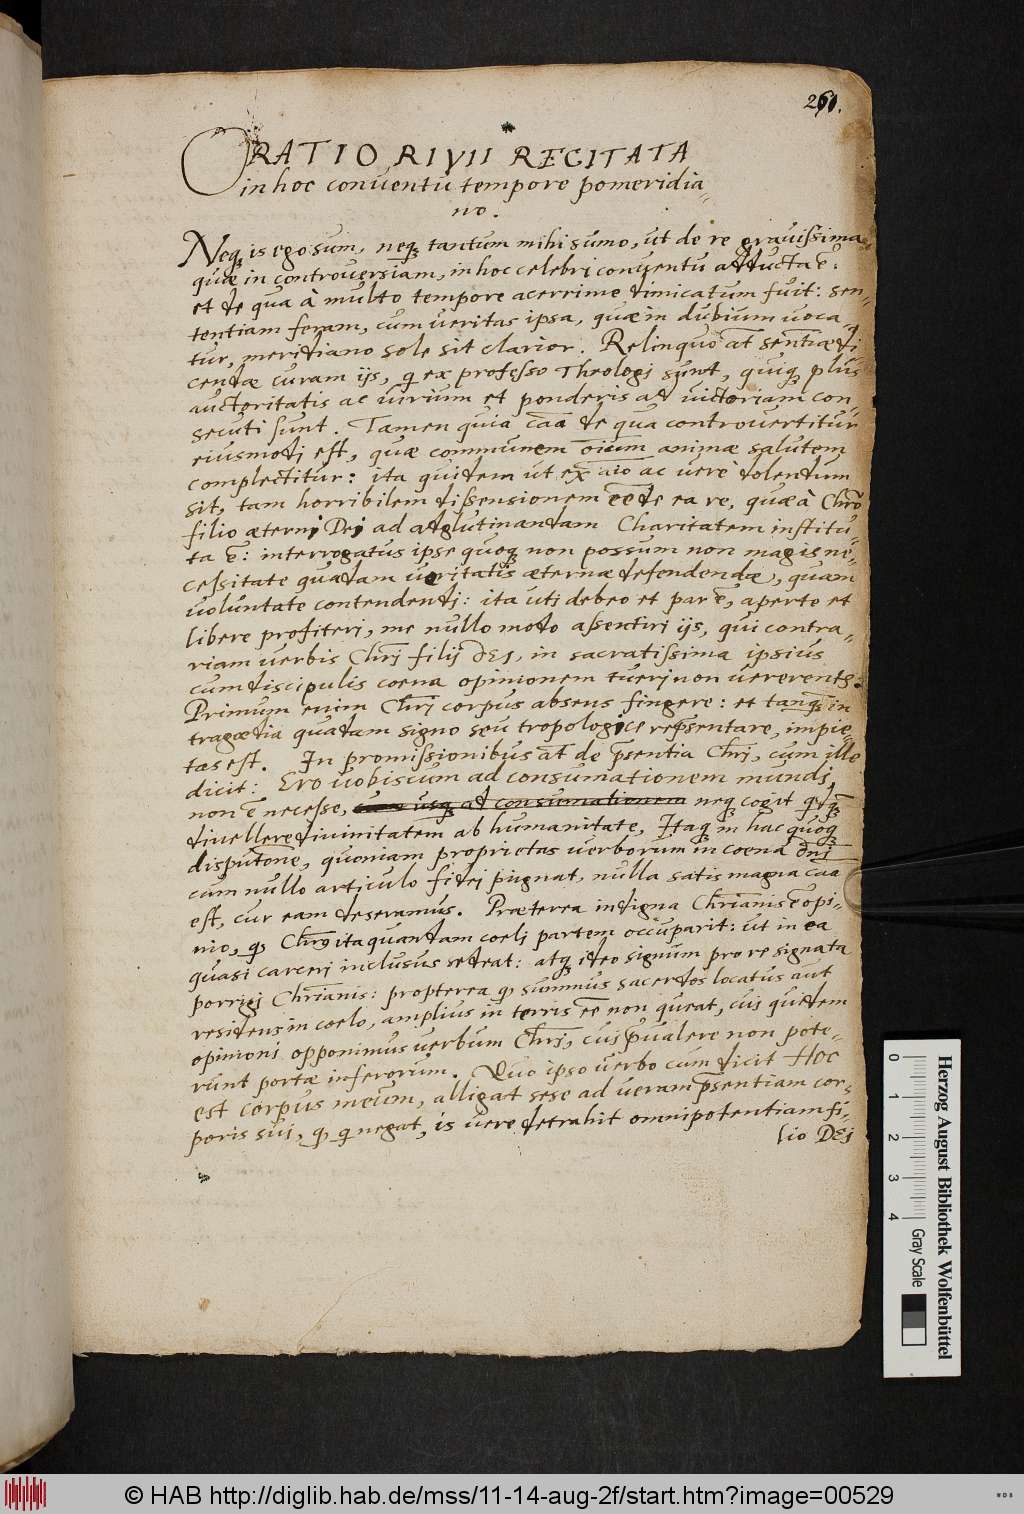 261.
ORATIO RIVII RECITATA
in hoc conventu tempore pomeridia„
no.
Neq₃ is ego sum, neq₃ tantum mihi sumo, ut de re gravissima
quæ in controversiam, in hoc celebri conventu adducta ē:
et de qua à multo tempore acerrime dimicatum fuit: sen„
tentiam feram, cum veritas ipsa, quæ in dubium voca„
tur, meridiano sole sit clarior. Relinquo āt sentīæ di„
cendæ curam ijs, q̄ ex professo Theologi sunt, quiq₃ plus
auctoritatis ac virium et ponderis ad victoriam con„
secuti sunt. Tamen quia cāā de qua controvertitur
eiusmodi est, quæ communem oīum animæ salutem
complectitur: ita quidem ut ex aīo ac vere dolendum
sit, tam horribilem dissensionem eē de ea re, quæ à Chrō
filio æterni Dei ad adglutinandam Charitatem institu„
ta ē: interrogatus ipse quoq₃ non possum non magis ne„
cessitate quadam veritatis æternæ defendendæ, quam
voluntate contendendi: ita uti debeo et par ē, aperte et
libere profiteri, me nullo modo assentiri ijs, qui contra„
riam verbis Chrī filij DEI, in sacratissima ipsius
cum discipulis coena opinionem tueri non verentr.
Primum enim Chrī corpus absens fingere: et tanq̄ in
tragædia quadam signo seu tropologice rep̄sentare, impie„
tas est. In promissionibus āt de p̄sentia Chrī, cum ille
dicit: Ero vobiscum ad consumationem mundi,
non ē necesse, cum usq₃ ad consumationem neq₃ cogit q̄dq̄
divellere divinitatem ab humanitate, Itaq₃ in hac quoq₃
disputōne, quoniam proprietas verborum in coena dn̄i
cum nullo articulo fidei pugnat, nulla satis magna cāā
est, cur eam deseramus. Præterea indigna Chrīanis ē opi„
nio, q₃ Chrūs ita quandam coeli partem occuparit: ut in ea
quasi carceri inclusus sedeat: atq₃ ideo signum pro re signata
porrigi Chrīanis: propterea q₃ summus sacerdos locatus aut
residens in coelo, amplius in terris eē non queat, cui quidem
opinioni opponimus verbum Chrī, cui p̄valere non pote„
runt portæ inferorum. Quo ipso verbo cum dicit Hoc
est corpus meum, alligat sese ad veram p̄sentiam cor„
poris sui, q₃ q̄ negat, is vere detrahit omnipotentiam fi„
lio DEI
Herzog August Bibliothek Wolfenbüttel
0 1 2 3 4
Gray Scale
© HAB http://diglib.hab.de/mss/11-14-aug-2f/start.htm?image=00529